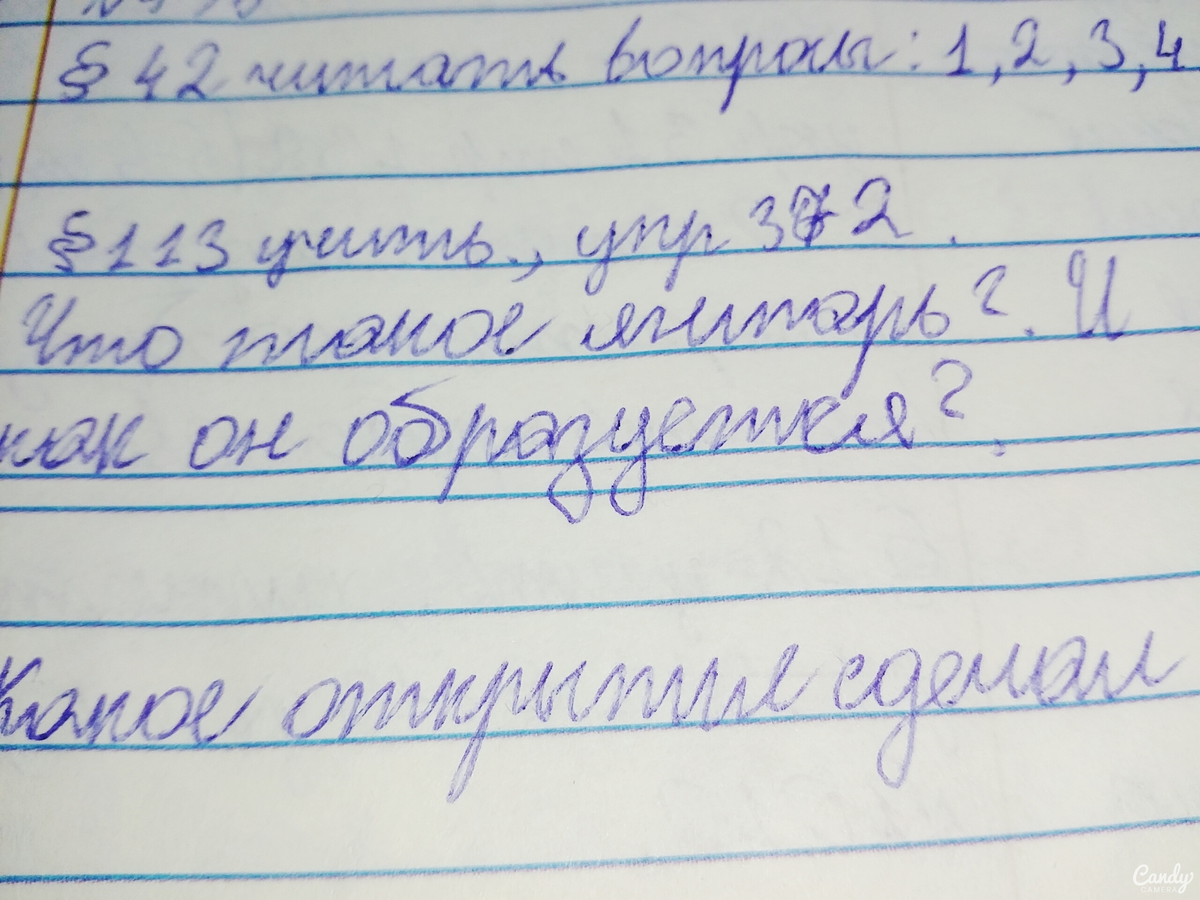 § 42 читать вопросы: 1, 2, 3, 4
§ 113 учить., упр 372.
Что такое янтарь?. И
как он образуется?.
Какое открытие сделал
Candy
CAMERA